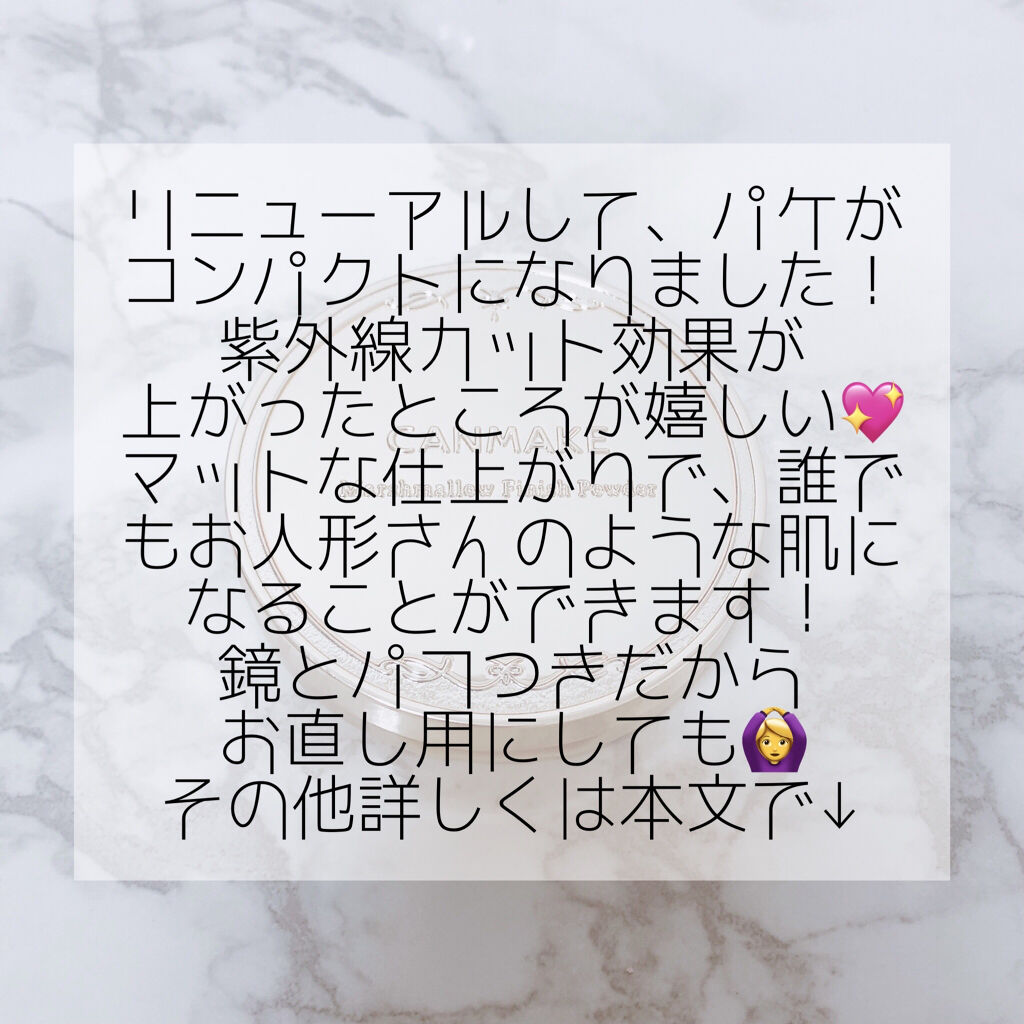 リニューアルして、パケが
コンパクトになりました！
紫外線カット効果が
上がったところが嬉しい💖
CANMAKE
マットな仕上がりで、誰で
Marshmallow Finish Powder
もお人形さんのような肌に
なることができます！
鏡とパフつきだから
お直し用にしても🙆‍♀️
その他詳しくは本文で↓